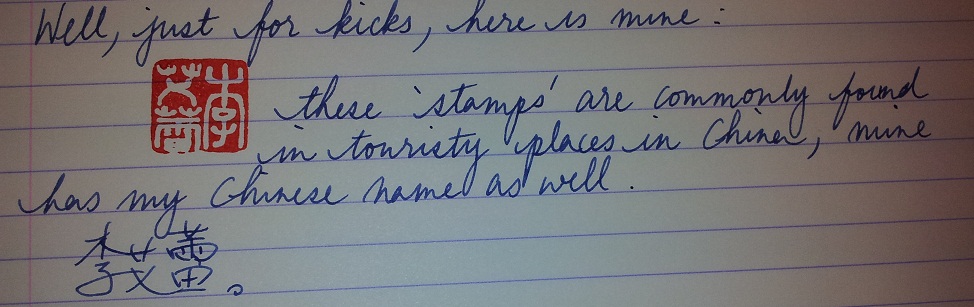 Well, just for kicks, here is mine :
these 'stamps' are commonly found
in touristy places in China, mine
has my Chinese name as well.
李艾蕾。